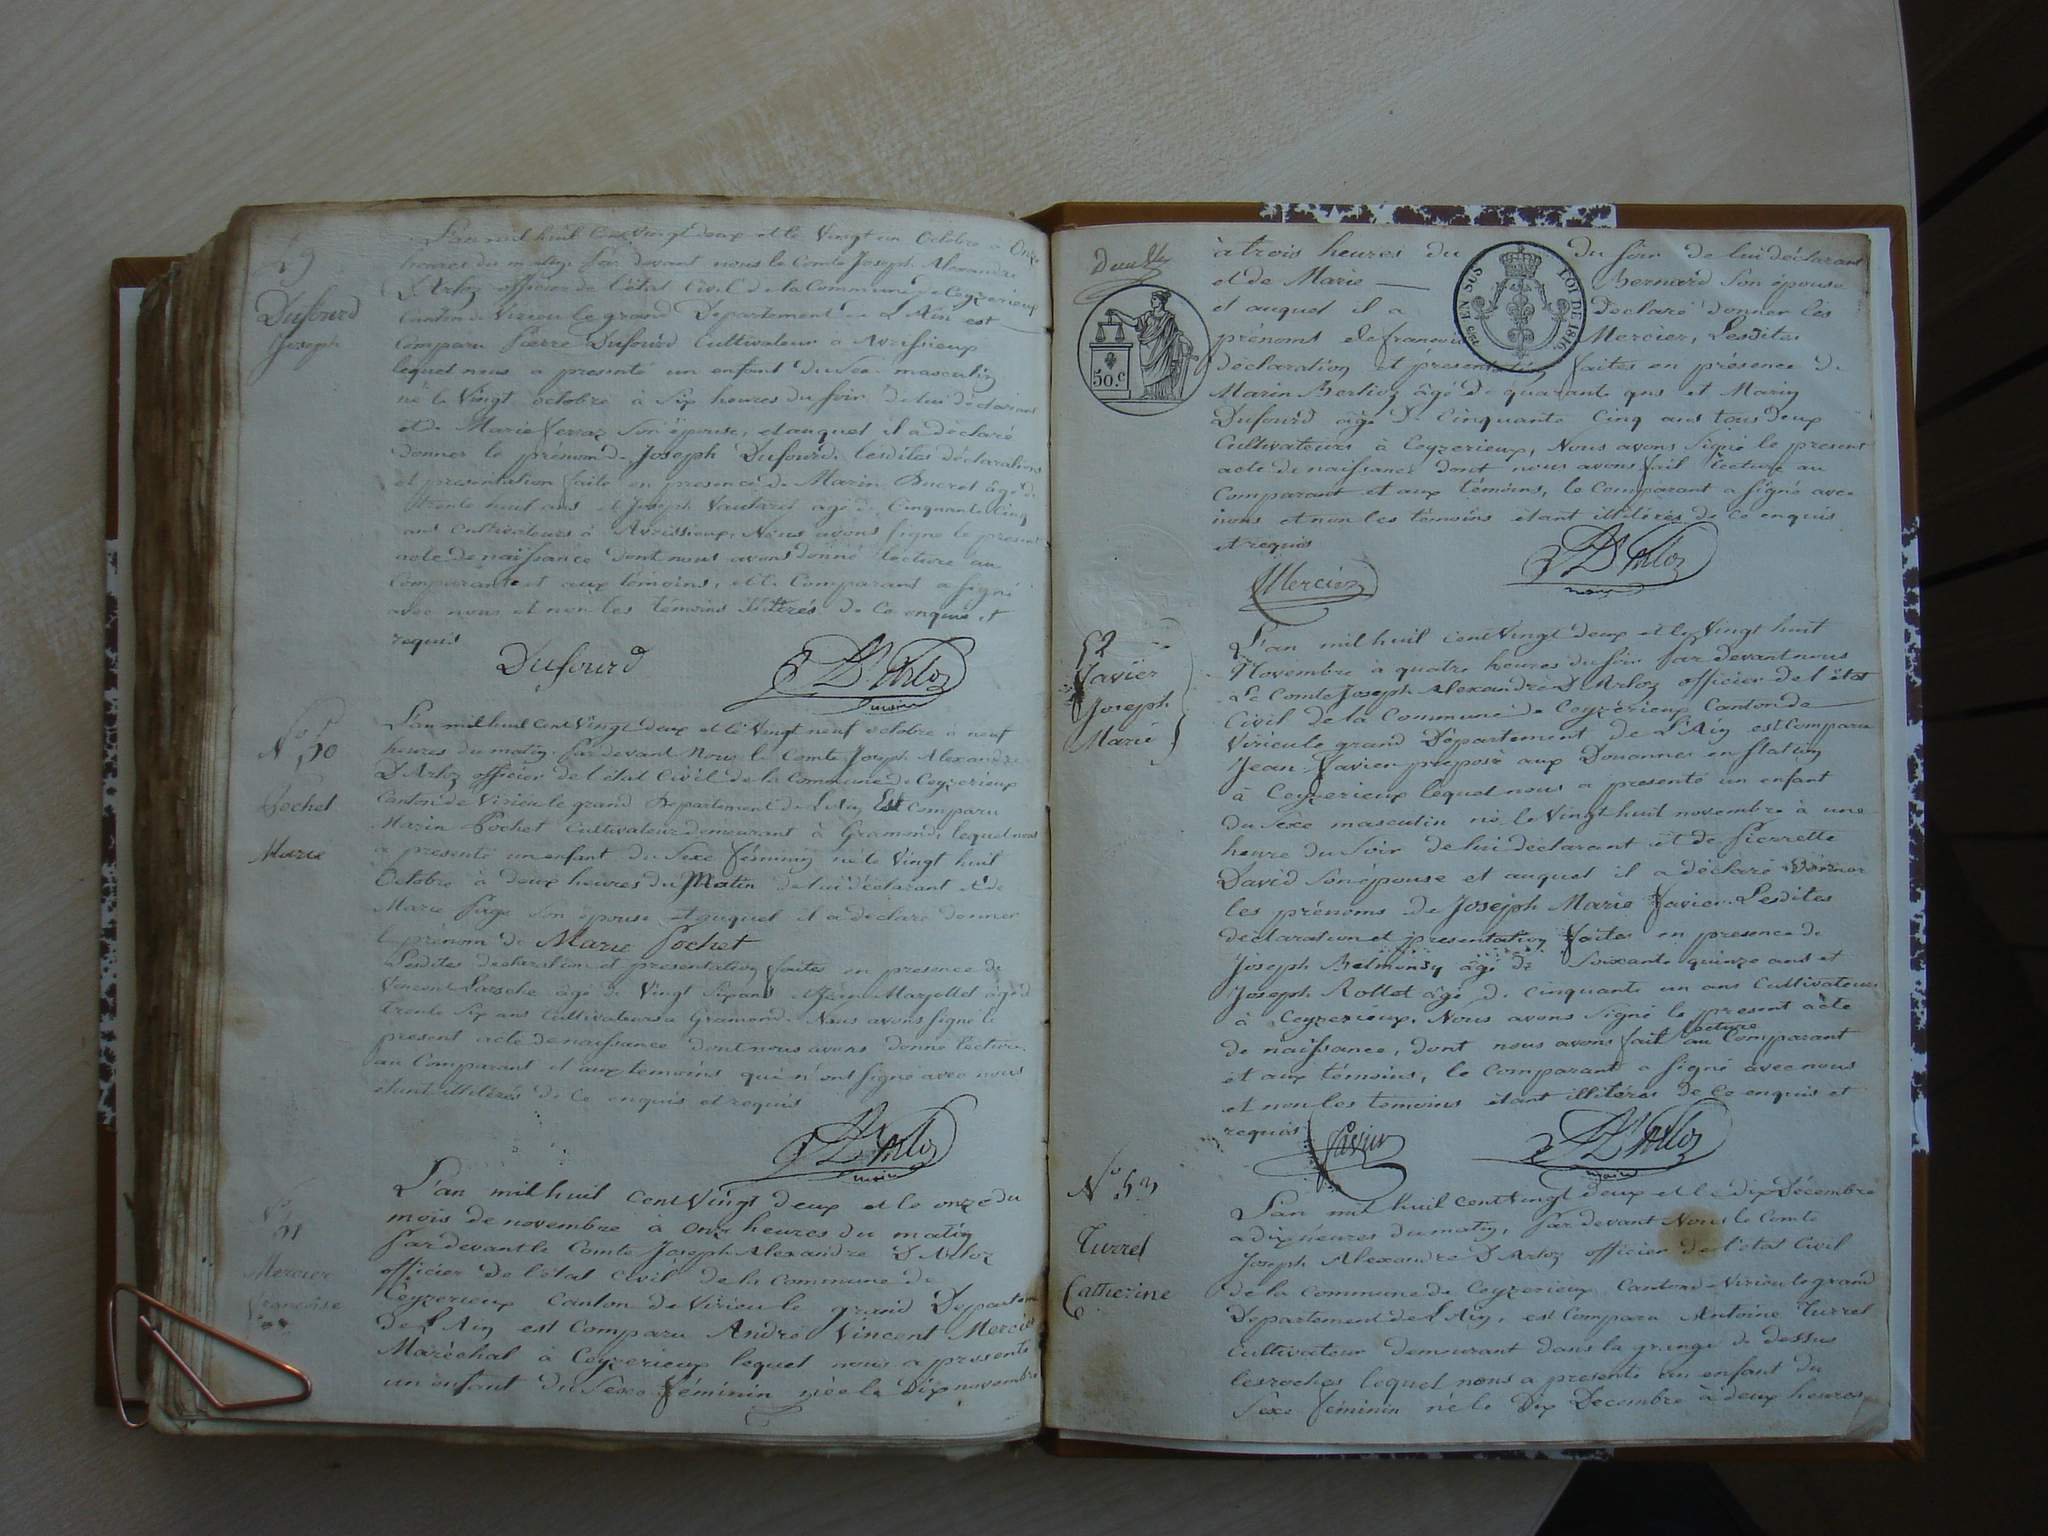 49
Dufourd
Joseph
L'an mil huit cent vingt deux et le vingt un Octobre a Onze
heures du matin par devant nous le Comte Joseph Alexandre
D'Arloz officier de l'état Civil de la Commune de Ceyzerieux
Canton de Virieu le grand Département de L'Ain est
Comparu Pierre Dufourd Cultivateur a Avrissieux
lequel nous a presenté un enfant du Sexe masculin
né le Vingt octobre à Six heures du soir de lui déclarant
et de Marie Ferraz Son épouse, et auquel il a déclaré
donner le prénom de Joseph Dufourd. Lesdites déclaration
et presentation faite en presence de Marin Ducret âgé de
trente huit ans et Joseph Vautaret âgé de Cinquante Cinq
ans Cultivateurs à Avrissieux, Nous avons signé le present
acte de naissance dont nous avons donné lecture au
Comparant et aux témoins, et le Comparant a signé
avec nous et non les témoins illitérés de Ce enquis et
requis
Dufourd
D'Arloz
maire
N° 50
Pochet
Marie
L'an mil huit cent Vingt deux et le Vingt neuf octobre à neuf
heures du matin par devant Nous le Comte Joseph Alexandre
D'Arloz officier de l'état Civil de la Commune de Ceyzerieux
Canton de Virieu le grand Departement de L'Ain Est Comparu
Marin Pochet Cultivateur demeurant à Gramond, lequel nous
a presenté un enfant du Sexe féminin né le Vingt huit
Octobre à deux heures du Matin de lui déclarant et de
Marie Page Son épouse et auquel il a déclaré donner
le prénom de Marie Pochet
Lesdites declaration et presentation faites en presence de
Vincent âgé de Vingt Six ans et Jean Marjollet âgé de
trente Six ans Cultivateurs a Gramond. Nous avons signé le
present acte de naissance dont nous avons donné lecture
au Comparant et aux temoins qui n'ont signé avec nous
étant illitérés de Ce enquis et requis
D'Arloz
maire
N°
51
Mercier
Françoise
L'an mil huit cent Vingt deux et le onze du
mois de novembre à Onze heures du matin
Par devant le Comte Joseph Alexandre D'Arloz
officier de l'état Civil de la Commune de
Ceyzerieux Canton de Virieu le grand Departeme
De L'Ain est Comparu André Vincent Mercier
Maréchal à Ceyzerieux lequel nous a presenté
un enfant du Sexe féminin née le Dix novembre
50.c
25 C. EN SUS
LOI DE 1816.
à trois heures du du soir de lui déclarant
et de Marie Bernard Son épouse
et auquel il a déclaré donner les
prénoms de Mercier, Lesdites
déclaration et presentation faites en présence de
Marin Berlioz âgé de quarante ans et Marin
Dufourd âgé de Cinquante Cinq ans tous deux
Cultivateurs à Ceyzerieux, Nous avons signé le present
acte de naissance dont nous avons fait lecture au
Comparant et aux témoins, le Comparant a signé avec
nous et non les témoins étant illitérés de Ce enquis
et requis
Mercier
D'Arloz
maire
52
Favier
Joseph
Marie
L'an mil huit cent Vingt deux et le Vingt huit
Novembre à quatre heures du soir par devant nous
Le Comte Joseph Alexandre D'Arloz officier de l'état
Civil de la Commune de Ceyzérieux Canton de
Virieu le grand Département de L'Ain est Comparu
Jean Favier preposé aux Douannes en station
à Ceyzerieux lequel nous a presenté un enfant
du Sexe masculin né le Vingt huit novembre à une
heure du Soir de lui déclarant et de Pierrette
David Son épouse et auquel il a déclaré donner
les prénoms de Joseph Marie Favier. Lesdites
déclaration et presentation faites en presence de
Joseph Belmondy âgé de Soixante quinze ans et
Joseph Rollet âgé de cinquante un ans Cultivateurs
à Ceyzerieux. Nous avons signé le present acte
de naissance, dont nous avons fait lecture au Comparant
et aux témoins, le Comparant a signé avec nous
et non les temoins étant illitérés de Ce enquis et
requis
Favier
D'Arloz
maire
N° 53
Turrel
Catherine
L'an mil huit cent Vingt deux et le dix Décembre
a dix heures du matin, par devant Nous le Comte
Joseph Alexandre D'Arloz officier de l'état Civil
de la Commune de Ceyzerieux Canton de Virieu le grand
Département de L'Ain, est Comparu Antoine Turrel
Cultivateur demeurant dans la grange de dessus
les roches lequel nous a presenté un enfant du
Sexe féminin né le Dix Decembre à deux heures